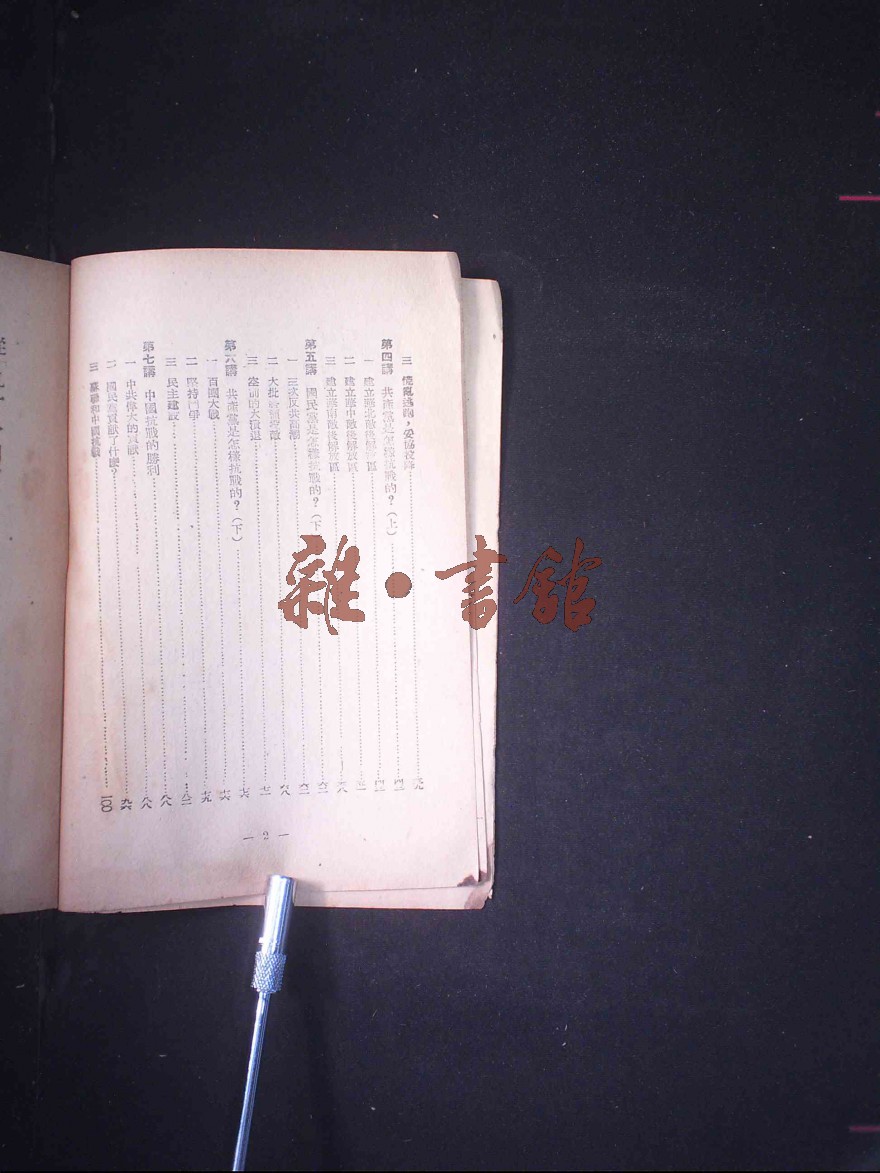 三 慌亂逃跑，妥協投降……三九
第四講 共產黨是怎樣抗戰的？（上）……四二
一 建立華北敵後解放區……四二
二 建立華中敵後解放區
三 建立華南敵後解放區……五八
第五講 國民黨是怎樣抗戰的？（下
一 三次反共高潮……六二
二 大批
三 空前的大潰退……七二
第六講 共產黨是怎樣抗戰的？（下）……七六
一 百團大戰……七六
二 堅持鬥爭……七九
三 民主建設……八二
第七講 中國抗戰的勝利……八八
一 中共偉大的貢獻……八八
二 國民黨貢獻了什麼？……九六
三 蘇聯和中國抗戰……一〇〇
— 2 —
雜·書館